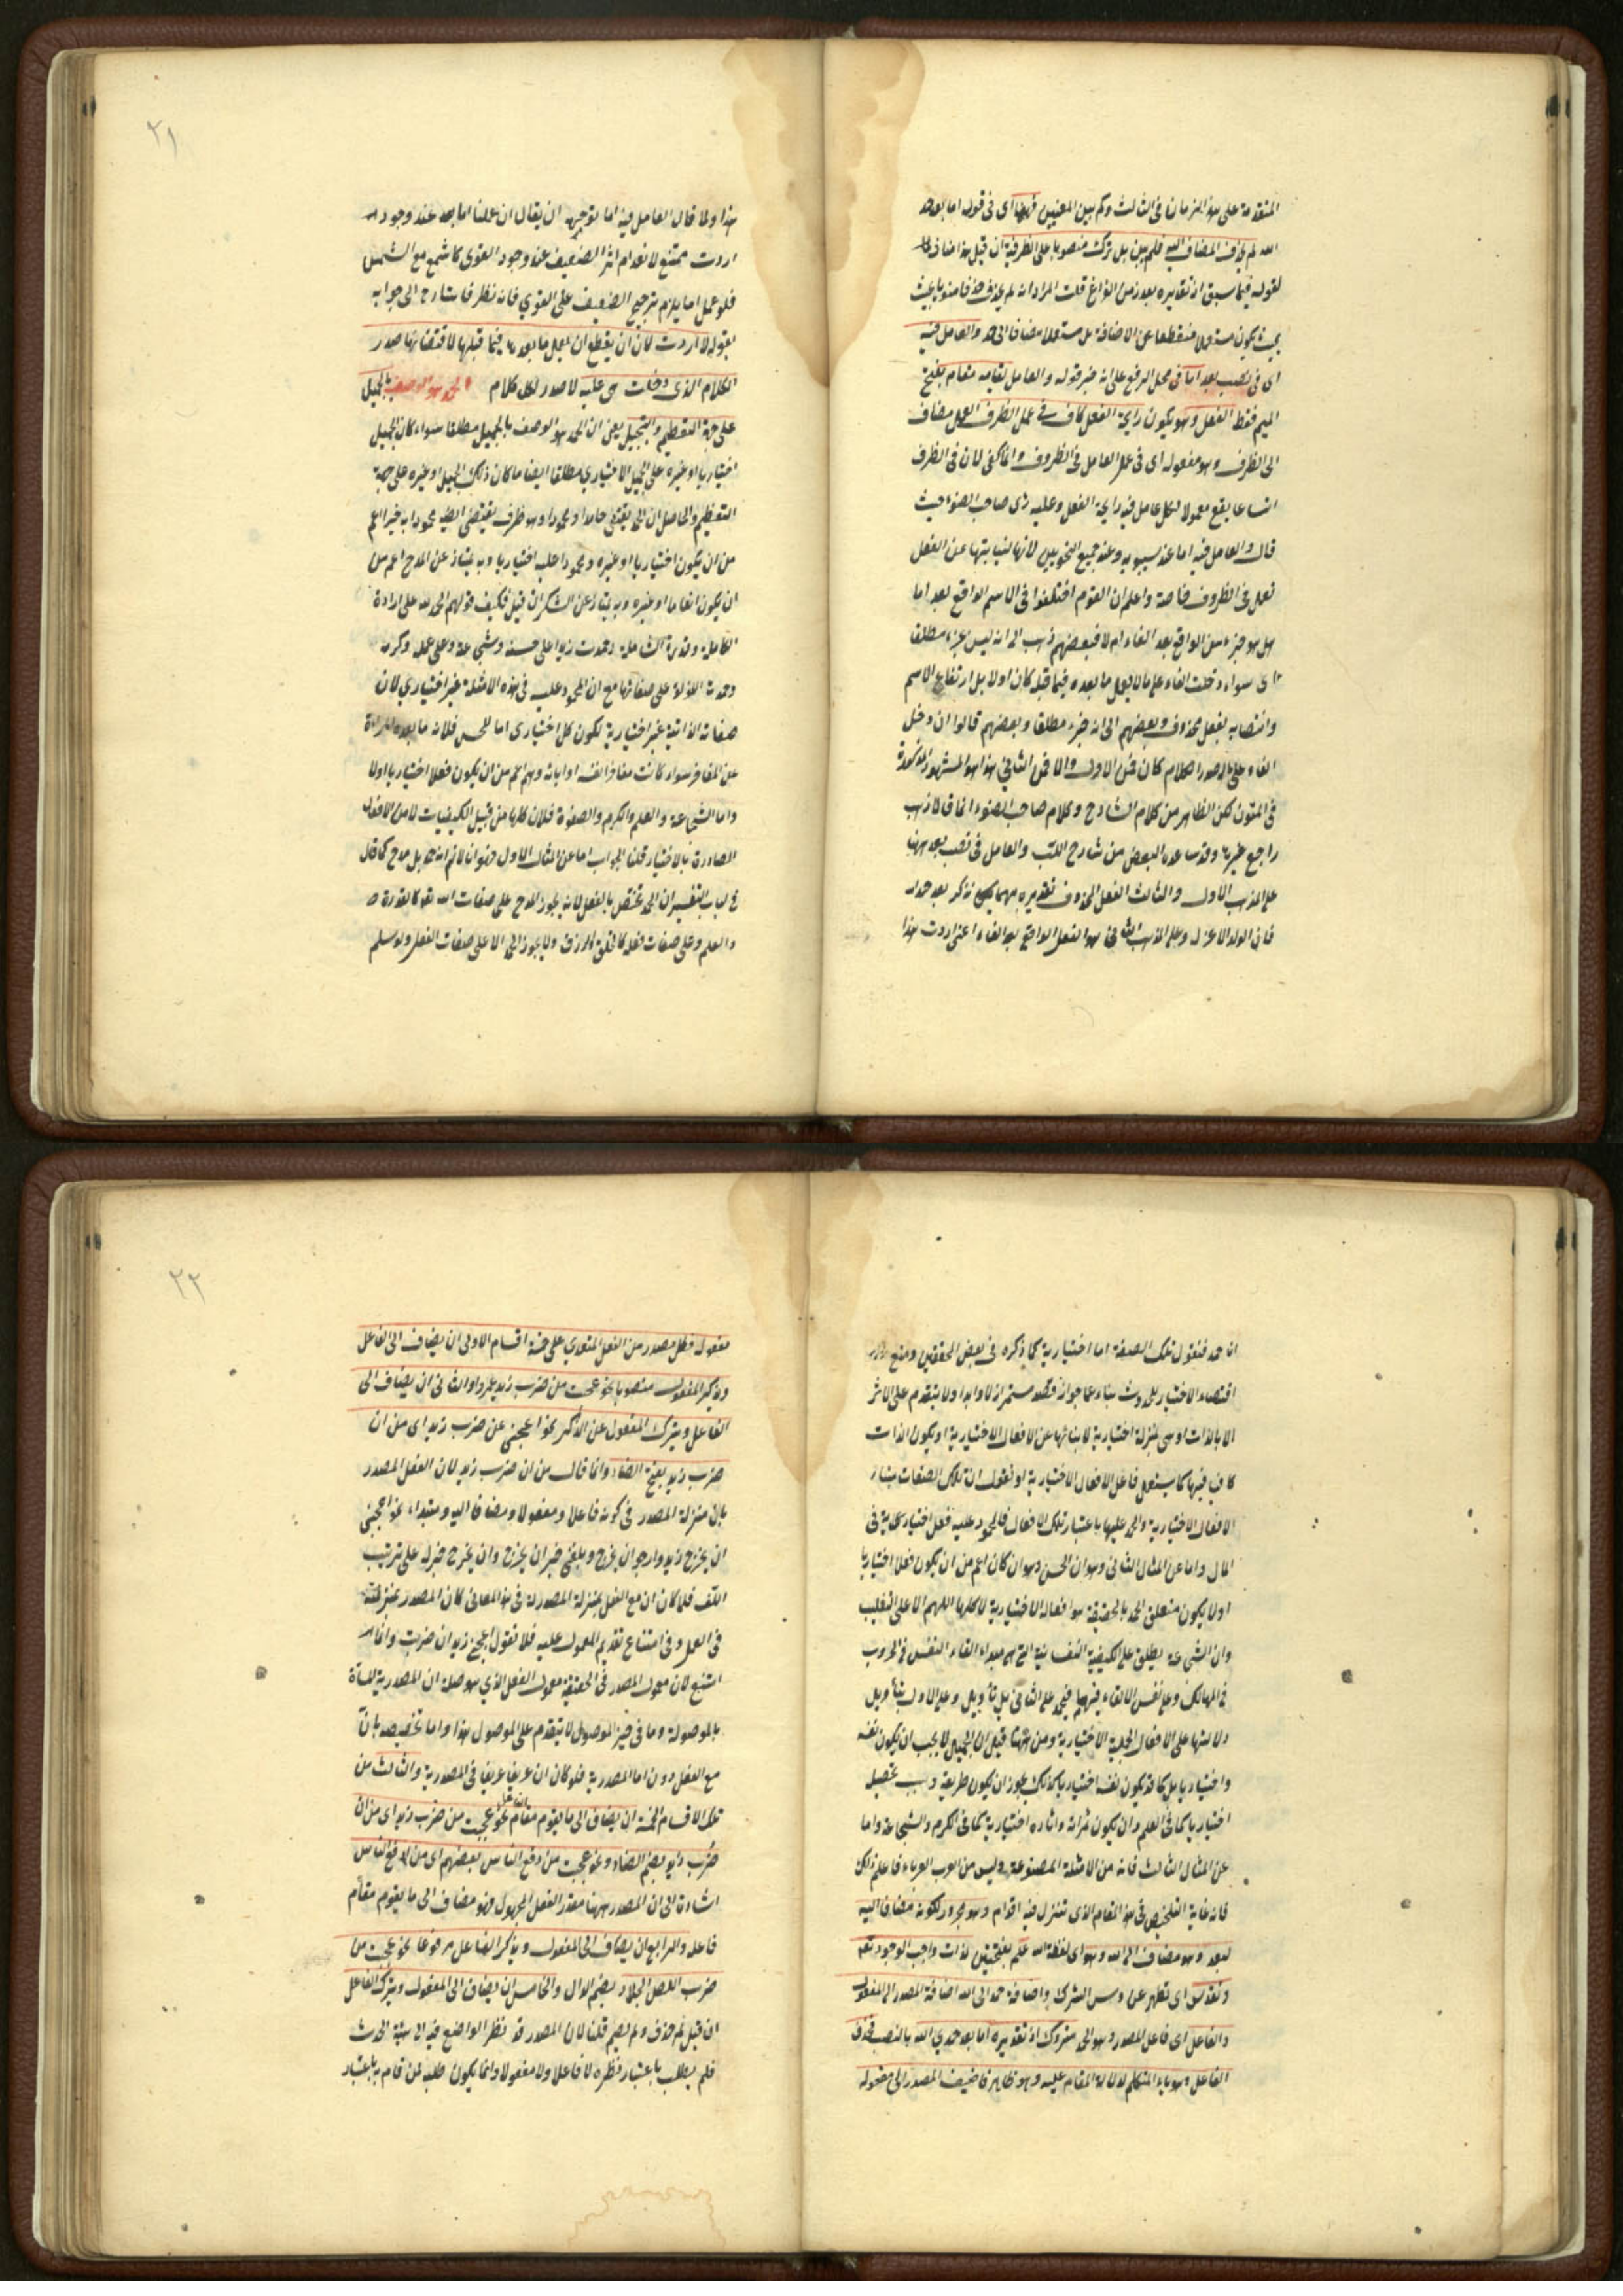 المتقدمة على هذا الزمان فى الثالث وكم بين المعنيين فههنا اى فى قوله اما بعد حمد
الله لم يحذف المضاف اليه فلم يبن بل ترك منصوبا على الظرفية ان قيل هذا مناف
لقوله فيما سبق اذ تقديره بعد زمن الفراغ قلت المراد انه لم يحذف حذفا منويا بحيث
بحيث يكون مستعملا منقطعا عن الاضافة بل مستعملا مضافا الى حمد والعامل فيه
اى فى نصب بعد اما فى محل الرفع على انه خبر قوله والعامل لقيامه مقام بفتح
الميم فقط الفعل وهو يكون رايحة الفعل كاف فى عمل الظرف العمل مضاف
الى الظرف وهو مفعوله اى فى عمل العامل فى الظروف وانما كفى لان فى الظرف
اتساعا يقع معمولا لكل عامل فيه رايحة الفعل وعليه رأى صاحب الضوء حيث
قال والعامل فيه اما عند سيبويه وعند جميع النحويين لانها لنيابتها عن الفعل
تعمل فى الظروف خاصة واعلم ان القوم اختلفوا فى الاسم الواقع بعد اما
هل هو جزء من الواقع بعد الفاء ام لا فبعضهم ذهب الى انه ليس بجزء مطلقا
اى سواء دخلت الفاء على ما لا يعمل ما بعده فيما قبله كان اولا بل ارتفاع الاسم
وانتصابه بفعل محذوف وبعضهم الى انه جزء مطلقا وبعضهم قالوا ان دخل
الفاء على ما له صدر الكلام كان فمن الاول والا فمن الثانى هذا هو المشهور المذكورة
فى المتون لكن الظاهر من كلام الشارح وكلام صاحب الضوء
راجع غيرها وقد ساعده البعض من شارح اللب والعامل فى نصب بعد ههنا
على المذهب الاول والثالث الفعل المحذوف تقديره مهما يكن نذكر بعد حمد الله
فان الولد الاعز وعلى المذهب الثانى هو الفعل الواقع بعد الفاء اعنى اردت هذا
٢١
هذا ولما قال العامل فيه اما توجه ان يقال ان عملنا اما بعد عند وجود
اردت ممتنع لانعدام اثر الضعيف عند وجود القوى كالشمع مع الشمس
فلو عمل اما يلزم ترجيح الضعيف على القوي فانه نظر فاشار الى جوابه
بقوله لا اردت لان ان يقطع ان يعمل ما بعدها فيما قبلها لاقتضائها صدر
الكلام الذى دخلت هى عليه لا صدر كل كلام الحمد هو الوصف بالجميل
على جهة التعظيم والتبجيل يعنى ان الحمد هو الوصف بالجميل مطلقا سواء كان الجميل
اختياريا او غيره على الجميل الاختياري مطلقا ايضا ما كان ذلك الجميل او غيره على جهة
التعظيم والحاصل ان الحمد يقتضى حامدا ومحمودا وهو ظرف يقتضى ايضا محمودا به خيرا اعم
من ان يكون اختياريا او غيره ومحمودا عليه اختياريا وبه يمتاز عن المدح اعم من
ان يكون انعاما او غيره وبه يمتاز عن الشكر ان قيل فكيف قولهم الحمد لله على ارادة
الكاملة وقدرة الشاملة وحمدت زيدا على حسنه وشجاعته وعلى علمه وكرمه
وحمدت اللؤلؤ على صفائها مع ان المحمود عليه فى هذه الامثلة غير اختياري لان
صفاته الذاتية غير اختيارية لكون كل اختيارى اما الحسن فلانه
عن المفاخر سواء كانت مفاخر نفسه او ابائه وهم اعم من ان يكون فعلا اختياريا اولا
واما الشجاعة والعلم والكرم والصفوة فلان كلها من قبيل الكيفيات لا من الافعال
الصادرة بالاختيار قلنا الجواب اما عن المثال الاول فهو انا لا نم انه حمد بل مدح كما قال
فى لباب التفسير ان الحمد تختص بالفعل لانه يجوز المدح على صفات الله تعالى كالقدرة
والعلم وعلى صفات فعله كالخلق والرزق ولا يجوز الحمد الا على صفات الفعل ولو سلم
انه حمد فنقول تلك الصفة اما اختيارية كما ذكره فى بعض المحققين ومنع
اقتضاء الاختيار للحدوث بناء على جواز قصد مستمر ازلا وابدا ولا يتقدم على الاثر
الا بالذات او هى بمنزلة اختيارية لابنائها عن الافعال الاختيارية او يكون الذات
كاف فيها كما يستعمل فاعل الافعال الاختيارية او نقول ان تلك الصفات مبناء
الافعال الاختيارية والحمد عليها باعتبار تلك الافعال فالمحمود عليه فعل اختيارى فى
المآل واما عن المثال الثانى وهو ان الحسن وهو ان كان اعم من ان يكون فعلا اختياريا
اولا يكون متعلق الحمد بالحقيقة هو افعاله الاختيارية لا كلها اللهم الا على التغليب
وان الشجاعة يطلق على الكيفية النفسانية التى هى مبداء القاء النفس فى الحروب
فى المهالك وعلى نفس الالقاء فيها فيحمد على الثانى بل تأويل وعلى الاول بتأويل
دلالتها على الافعال الجلية الاختيارية ومن ههنا قيل ان الجميل لا يجب ان يكون نفسه
واختياريا بل كما قد يكون نفسه اختياريا كذلك يجوز ان يكون طريقه وسبب تحصيله
اختياريا كما فى العلم وان يكون ثمراته واثاره اختيارية كما فى الكرم والشجاعة واما
عن المثال الثالث فانه من الامثلة المصنوعة وليس من العرب العرباء فاعلم ذلك
فانه غاية التلخيص فى هذا المقام الذى تتنزل فيه اقدام وهو مجرور لكونه مضافا اليه
لبعد وهو مضاف الى الله وهو اى لفظة الله علم بفتحتين لذات واجب الوجود تعه
وتقدس اى تطهر عن دنس الشرك واضافة حمد الى الله اضافة المصدر الى المفعول
والفاعل اى فاعل المصدر وهو الحمد متروك اذ تقديره اما بعد حمدي الله بالنصب فحذف
الفاعل وهو ياء المتكلم لدلالة المقام عليه وهو ظاهر فاضيف المصدر الى مفعوله
٢٢
مفعوله فكل مصدر من الفعل المتعدي على خمسة اقسام الاولى ان يضاف الى الفاعل
ويذكر المفعول منصوبا نحو عجبت من ضرب زيد عمروا والثانى ان يضاف الى
الفاعل ويترك المفعول عن الذكر نحو اعجبنى عن ضرب زيد اى من ان
ضرب زيد بفتح الضاد وانما قال من ان ضرب زيد لان الفعل المصدر
بان منزلة المصدر فى كونه فاعلا ومفعولا ومضافا اليه ومبتداء نحو اعجبنى
ان يخرج زيد وارجو ان يخرج وبلغنى خبر ان يخرج وان يخرج خير له على ترتيب
اللف فلما كان ان مع الفعل بمنزلة المصدر له فى هذا المعانى كان المصدر بمنزلته
فى العمل وفى امتناع تقديم المعمول عليه فلا نقول اعجبنى زيدا ان ضربت وانما
امتنع لان معمول المصدر فى الحقيقة معمول الفعل الذي هو صلة ان المصدرية المسماة
بالموصولة وما فى حيز الموصول لا يتقدم على الموصول هذا واما تخصيصه بان
مع الفعل دون اما المصدرية فلو كان ان عريقا عريقا فى المصدرية والثالث من
تلك الاقسام الخمسة ان يضاف الى ما يقوم مقام الفاعل نحو عجبت من ضرب زيد اى من ان
ضرب زيد بضم الضاد ونحو عجبت من دفع الناس بعضهم اى من ان دفع الناس
اشارة الى ان المصدر ههنا مقدر الفعل المجهول فهو مضاف الى ما يقوم مقام
فاعله والرابع ان يضاف الى المفعول ويذكر الفاعل مرفوعا نحو عجبت من
ضرب اللص الجلاد بضم الدال والخامس ان يضاف الى المفعول ويترك الفاعل
ان قيل لم حذف ولم يضم قلنا لان المصدر قد نظر الواضع فيه الى نسبة الحدث
فلم يطلب باعتبار نظره لا فاعلا ولا مفعولا وانما يكون طلبه لمن قام به باعتبار